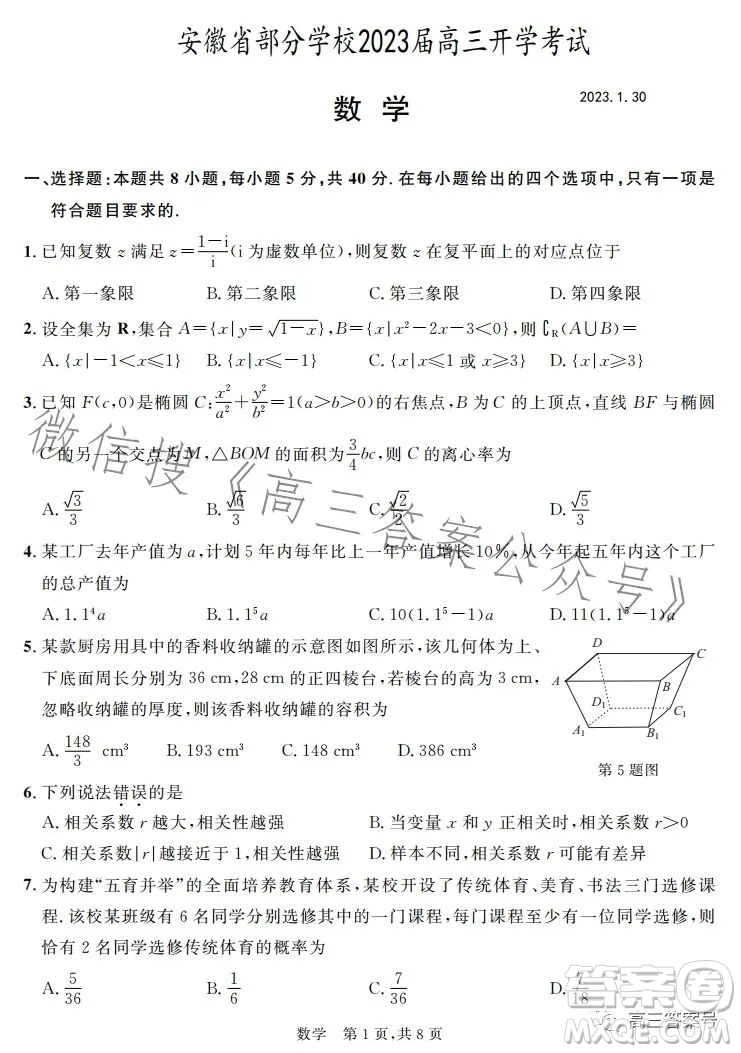 安徽省部分学校2023届高三开学考试
数 学
2023.1.30
一、选择题:本题共 8 小题,每小题 5 分,共 40 分.在每小题给出的四个选项中,只有一项是
符合题目要求的.
1. 已知复数 z 满足 z=\frac{1-i}{i}(i 为虚数单位),则复数 z 在复平面上的对应点位于
A. 第一象限 B. 第二象限 C. 第三象限 D. 第四象限
2. 设全集为 R,集合 A={x|y=\sqrt{1-x}},B={x|x²-2x-3<0},则 ∁_R(A∪B)=
A. {x|-1<x≤1} B. {x|x≤-1} C. {x|x≤1 或 x≥3} D. {x|x≥3}
3. 已知 F(c,0)是椭圆 C:\frac{x²}{a²}+\frac{y²}{b²}=1(a>b>0)的右焦点,B 为 C 的上顶点,直线 BF 与椭圆
C 的另一个交点为 M,△BOM 的面积为\frac{3}{4}bc,则 C 的离心率为
A. \frac{\sqrt{3}}{3} B. \frac{\sqrt{6}}{3} C. \frac{\sqrt{2}}{2} D. \frac{\sqrt{5}}{3}
4. 某工厂去年产值为 a,计划 5 年内每年比上一年产值增长 10%,从今年起五年内这个工厂
的总产值为
A. 1.1⁴a B. 1.1⁵a C. 10(1.1⁵-1)a D. 11(1.1⁵-1)a
5. 某款厨房用具中的香料收纳罐的示意图如图所示,该几何体为上、
下底面周长分别为 36 cm,28 cm 的正四棱台,若棱台的高为 3 cm,
忽略收纳罐的厚度,则该香料收纳罐的容积为
A. \frac{148}{3} cm³ B. 193 cm³ C. 148 cm³ D. 386 cm³
D
C
A
B
D₁
C₁
A₁
B₁
第 5 题图
6. 下列说法错误的是
A. 相关系数 r 越大,相关性越强 B. 当变量 x 和 y 正相关时,相关系数 r>0
C. 相关系数|r|越接近于 1,相关性越强 D. 样本不同,相关系数 r 可能有差异
7. 为构建“五育并举”的全面培养教育体系,某校开设了传统体育、美育、书法三门选修课
程.该校某班级有 6 名同学分别选修其中的一门课程,每门课程至少有一位同学选修,则
恰有 2 名同学选修传统体育的概率为
A. \frac{5}{36} B. \frac{1}{6} C. \frac{7}{36} D. \frac{7}{18}
数学 第 1 页,共 8 页
微信搜《高三答案公众号》
答案卷
高三答案号